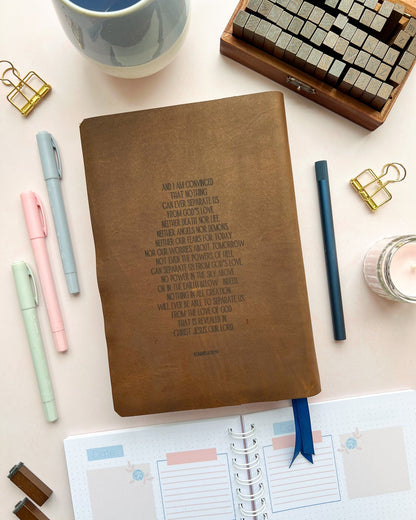 AND I AM CONVINCED
THAT NOTHING
CAN EVER SEPARATE US
FROM GOD'S LOVE.
NEITHER DEATH NOR LIFE,
NEITHER ANGELS NOR DEMONS,
NEITHER OUR FEARS FOR TODAY
NOR OUR WORRIES ABOUT TOMORROW
NOT EVEN THE POWERS OF HELL
CAN SEPARATE US FROM GOD'S LOVE.
NO POWER IN THE SKY ABOVE
OR IN THE EARTH BELOW INDEED,
NOTHING IN ALL CREATION
WILL EVER BE ABLE TO SEPARATE US
FROM THE LOVE OF GOD
THAT IS REVEALED IN
CHRIST JESUS OUR LORD.